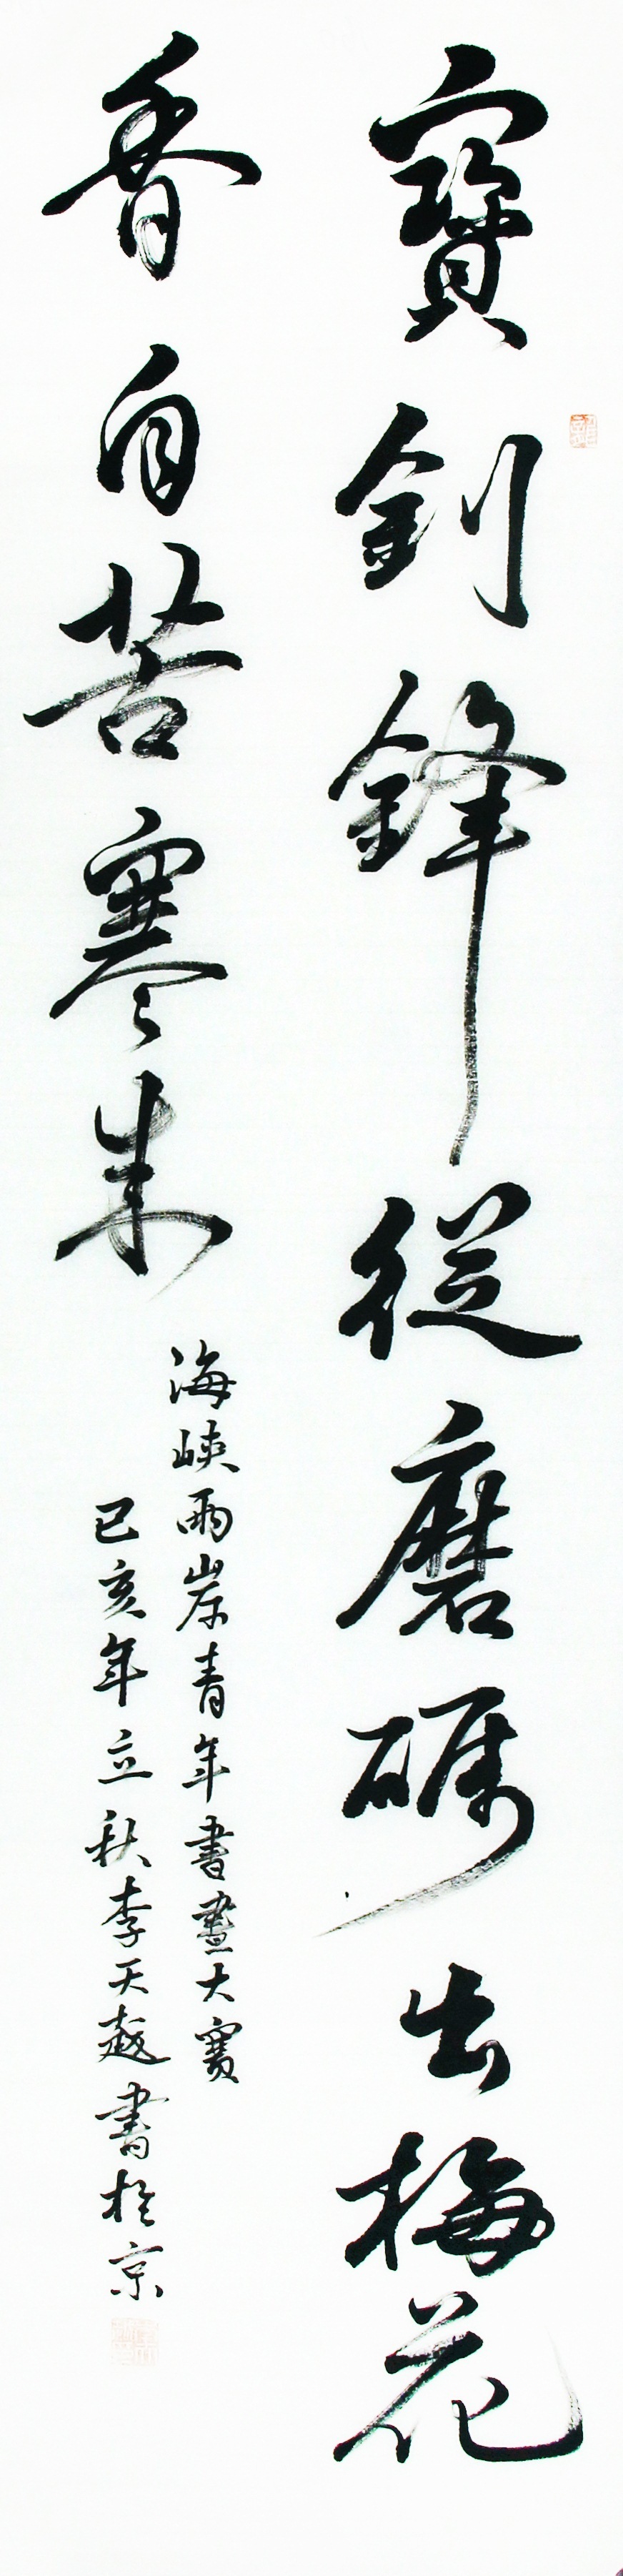 寶劍鋒從磨礪出梅花
香自苦寒来
海峡兩岸青年書畫大賽
己亥年立秋李天越書於京